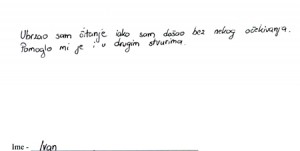 Ubrzao sam čitanje iako sam došao bez nekog očekivanja.
Pomoglo mi je i u drugim stvarima.
Ime - Ivan